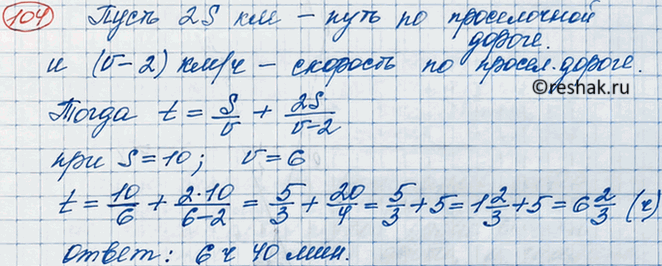 104 Пусть 2S км – путь по проселочной
дороге.
и (v-2) км/ч – скорость по просел. дороге.
©reshak.ru
Тогда t = S/v + 2S/v-2
при S=10; v=6
t = 10/6 + 2·10/6-2 = 5/3 + 20/4 = 5/3 + 5 = 1 2/3 + 5 = 6 2/3 (ч)
ответ: 6 ч 40 мин.